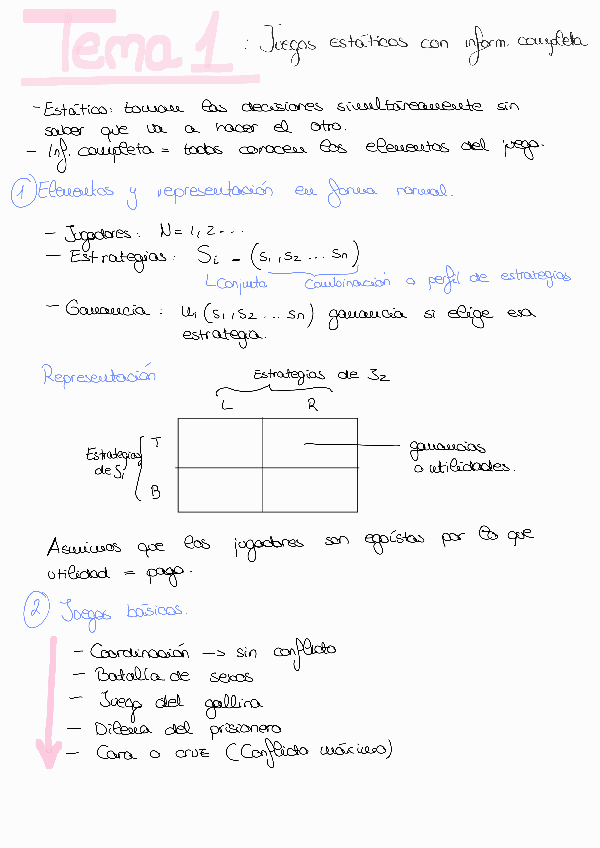 Tema 1 : Juegos estáticos con inform. completa
- Estático: toman las decisiones simultáneamente sin
saber que va a hacer el otro.
- Inf. completa = todos conocen los elementos del juego.
① Elementos y representación en forma normal.
- Jugadores: N = 1, 2 ...
- Estrategias: Si - (s1, s2 ... sn)
Conjunto Combinación o perfil de estrategias
- Ganancia: ui (s1, s2 ... sn) ganancia si elige esa
estrategia.
Representación
Estrategias de S2
L R
Estrategias
de Si
T
B
ganancias
o utilidades.
Asumimos que los jugadores son egoístas por lo que
utilidad = pago.
② Juegos básicos.
- Coordinación -> sin conflicto
- Batalla de sexos
- Juego del gallina
- Dilema del prisionero
- Cara o cruz (Conflicto máximo)